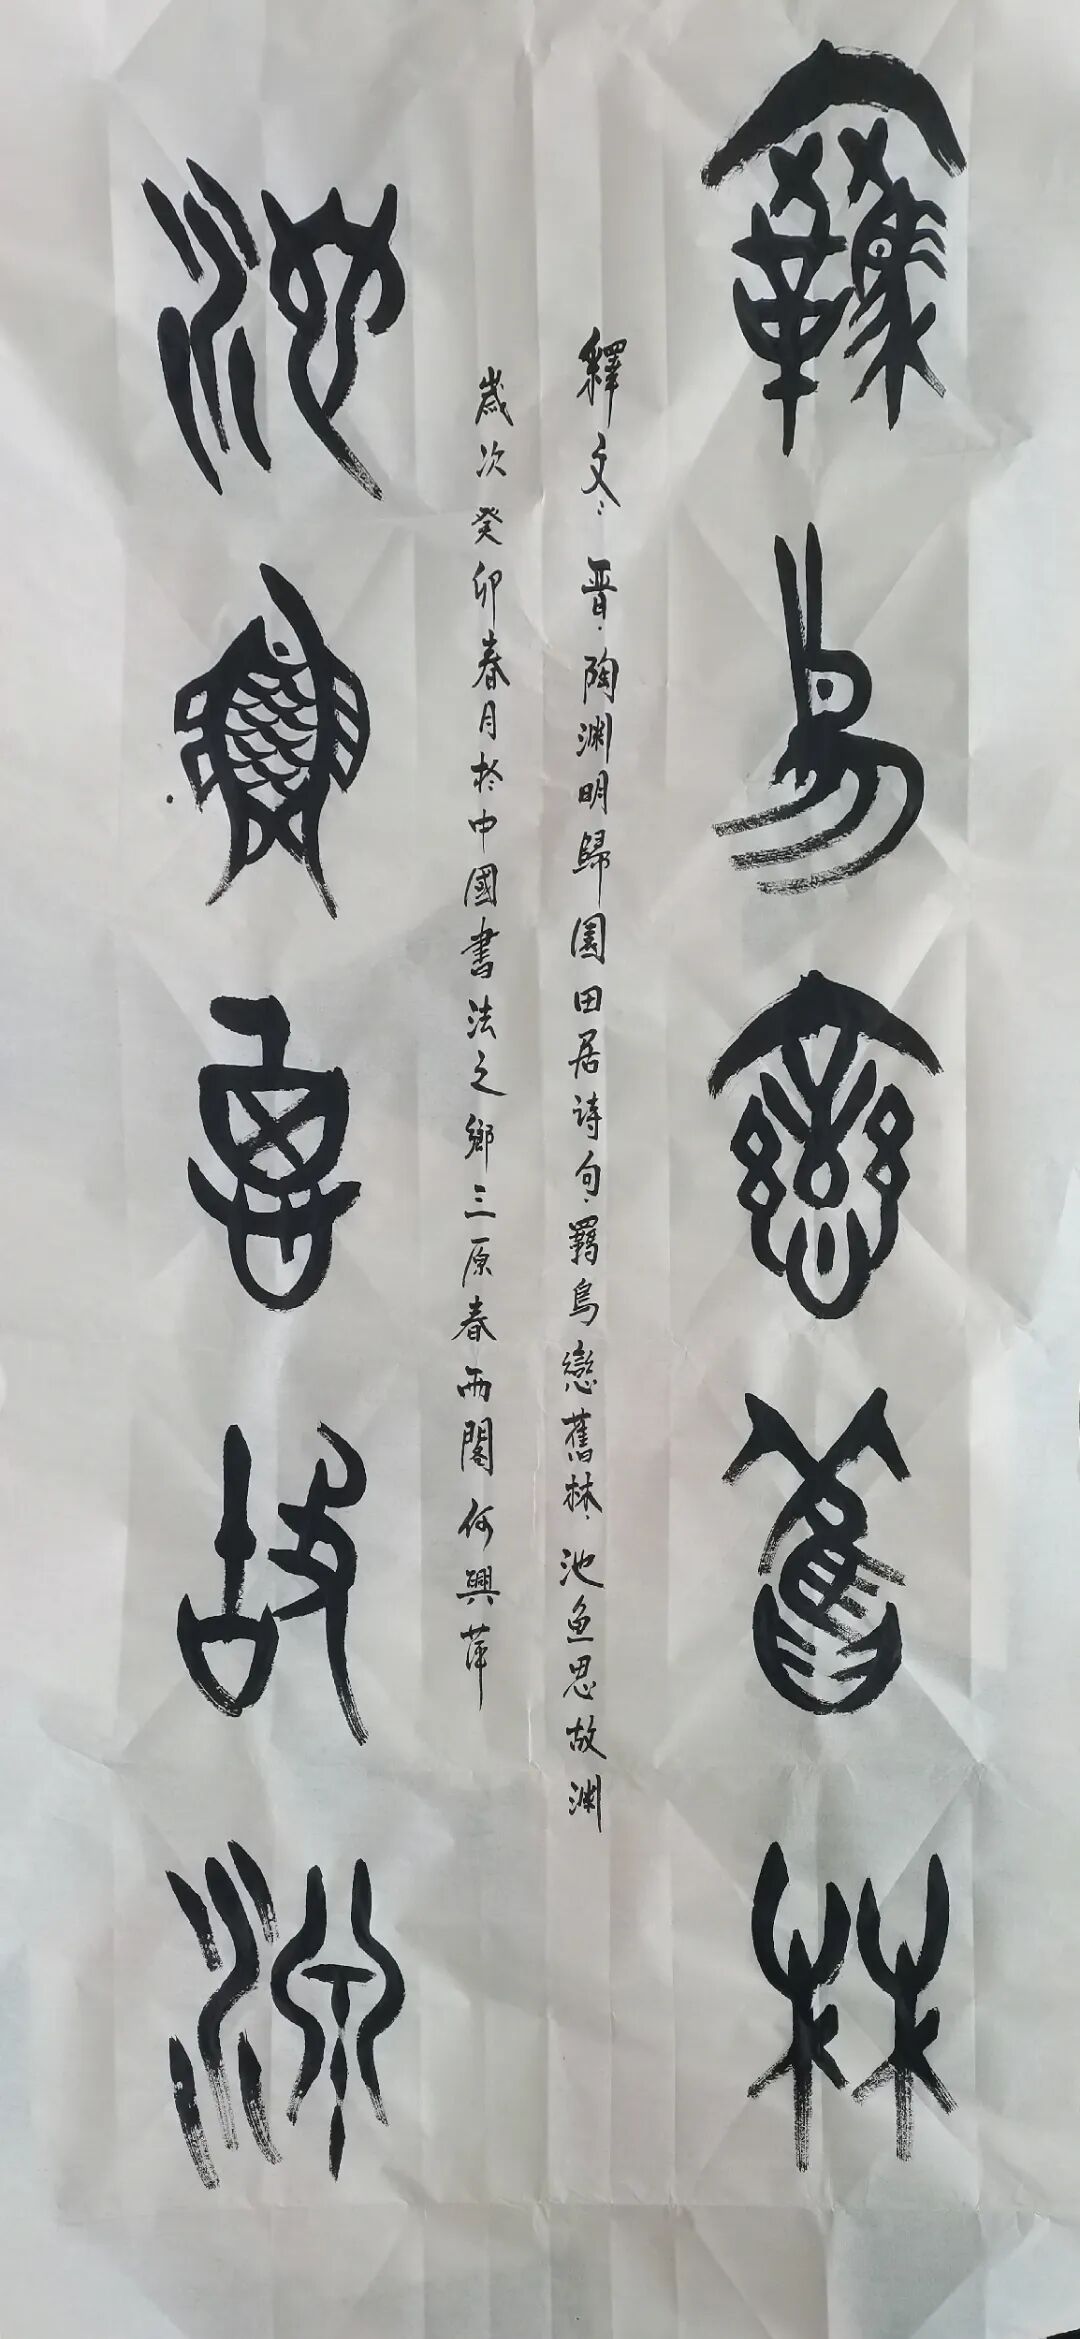 羈鳥戀舊林
釋文：晋·陶渊明歸園田居詩句·羈鳥戀舊林·池魚思故渊
歲次癸卯春月於中國書法之鄉三原春雨閣何興萍
池魚思故渊